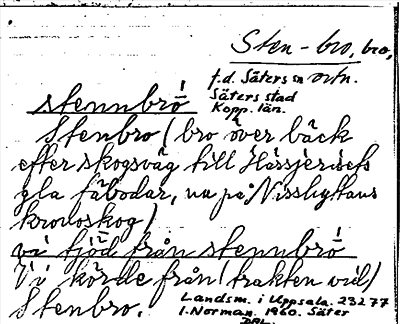 Sten-bro, bro,
f.d. Säters sn ortn.
Säters stad
Kopp. län.
stennbrō
Stenbro (bro över bäck
efter skogsväg till
gla fäbodar, nu på Nisshyttans
kronoskog)
vi tjōd från stennbrō
Vi körde från (trakten vid)
Stenbro.
Landsm. i Uppsala. 23277
I. Norman. 1960. Säter
DAL.